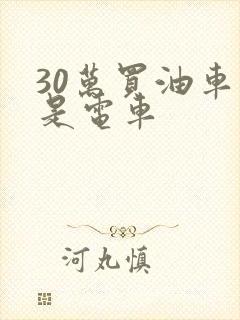 30萬買油車
是電車
河丸慎